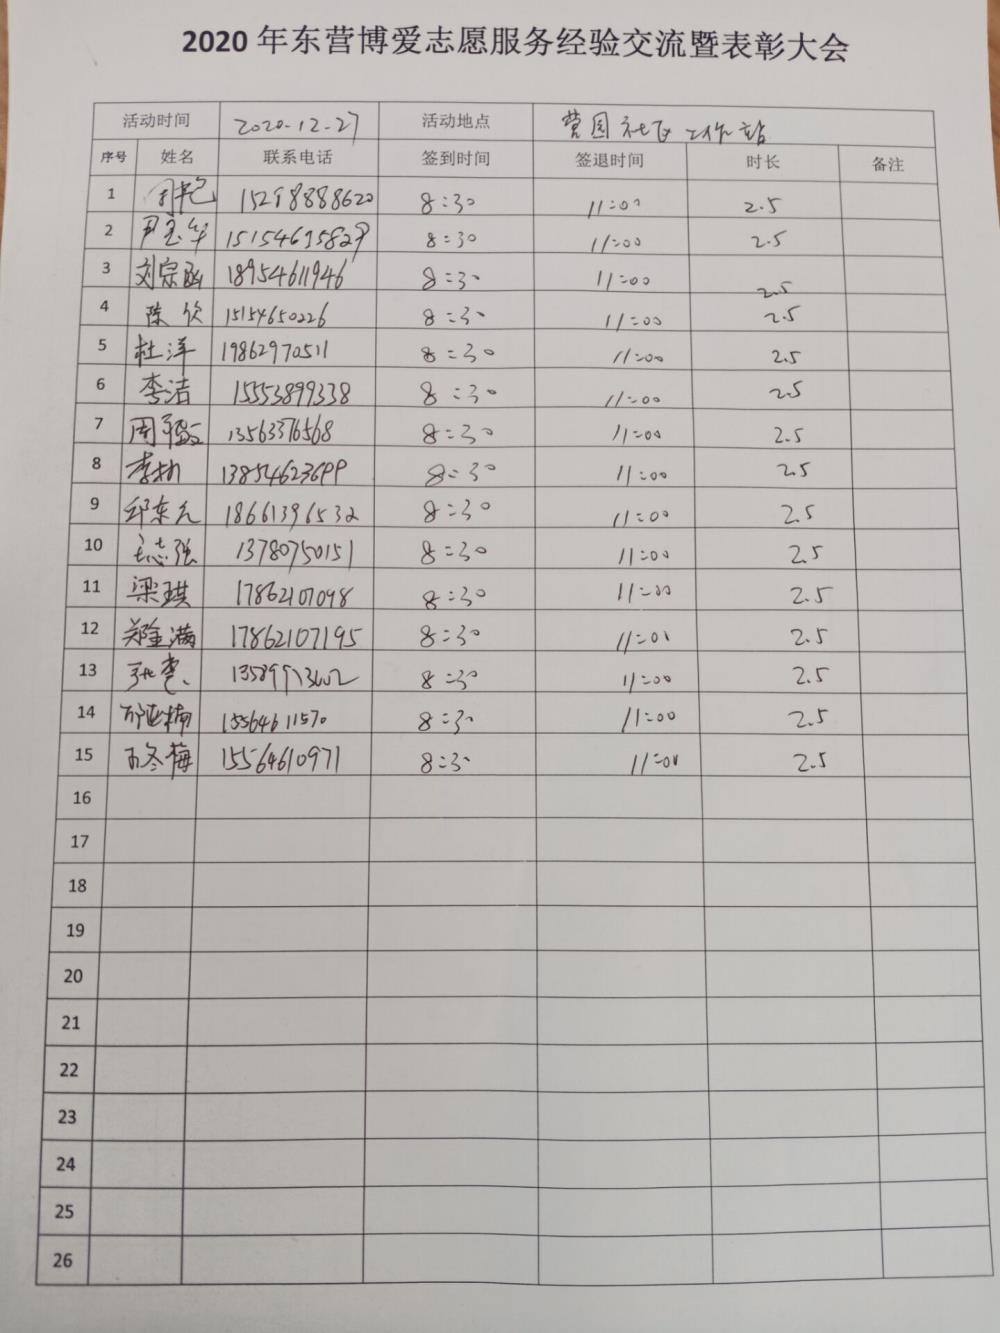 2020年东营博爱志愿服务经验交流暨表彰大会
活动时间 2020.12.27 活动地点 营园社区工作站
序号 姓名 联系电话 签到时间 签退时间 时长 备注
1 15298888620 8:30 11:00 2.5
2 尹宝华 15154695829 8:30 11:00 2.5
3 刘宗函 18954611946 8:30 11:00 2.5
4 陈欣 15154650226 8:30 11:00 2.5
5 杜洋 19862970511 8:30 11:00 2.5
6 李洁 15553899338 8:30 11:00 2.5
7 周 13563376568 8:30 11:00 2.5
8 李 13854623699 8:30 11:00 2.5
9 邱东元 18661396532 8:30 11:00 2.5
10 志强 13780750151 8:30 11:00 2.5
11 梁琪 17862107098 8:30 11:00 2.5
12 郑金满 17862107195 8:30 11:00 2.5
13 张 8:30 11:00 2.5
14 15564611570 8:30 11:00 2.5
15 冬梅 15564610971 8:30 11:00 2.5
16
17
18
19
20
21
22
23
24
25
26